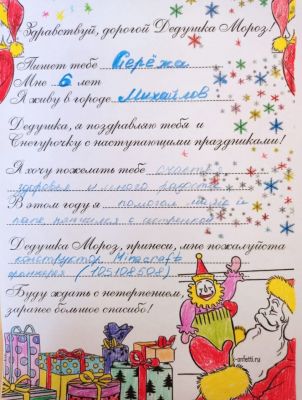 Здравствуй, дорогой Дедушка Мороз!
Пишет тебе Серёжа
Мне 6 лет
Я живу в городе Михайлов
Дедушка, я поздравляю тебя и
Снегурочку с наступающими праздниками!
Я хочу пожелать тебе счастья
здоровья и много радости
В этом году я помогал маме и
папе, нянчился с сестренкой
Дедушка Мороз, принеси, мне пожалуйста
конструктор Minecraft
(105108508)
Буду ждать с нетерпением,
заранее большое спасибо!
-onfetti.ru